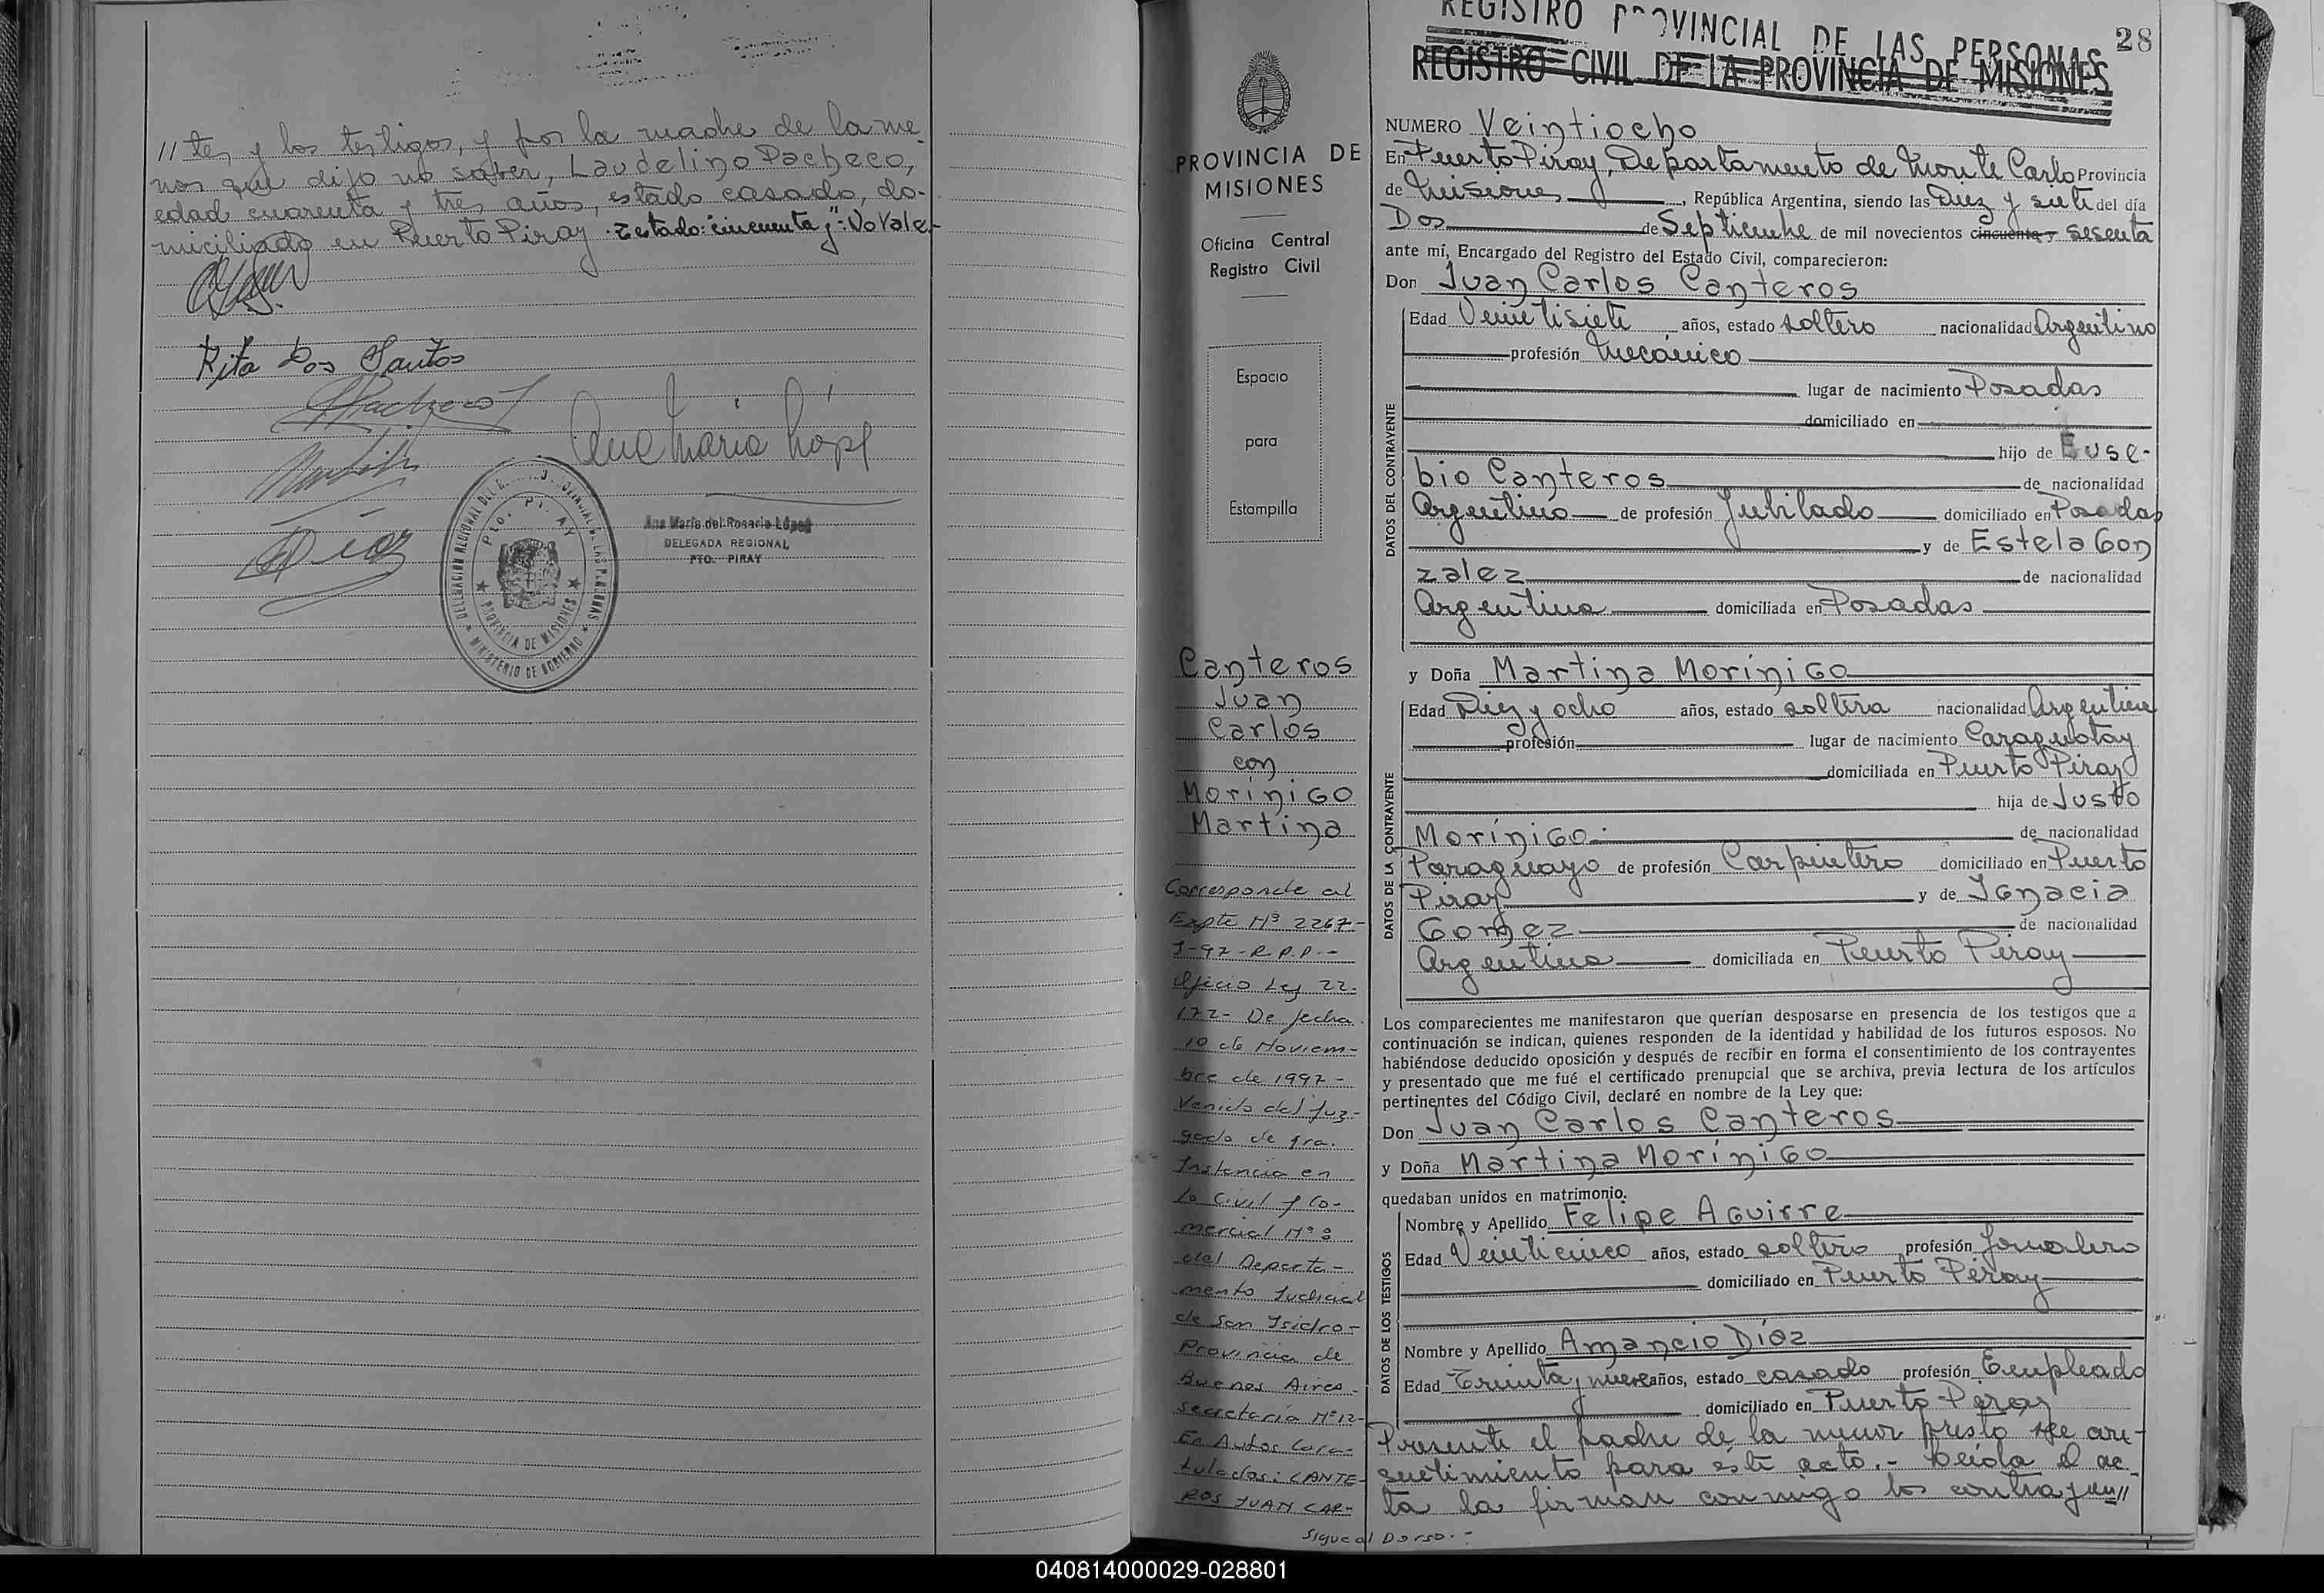 //tes y los testigos, y por la madre de la me
nor que dijo no saber, Laudelino Pacheco,
edad cuarenta y tres años, estado casado, do-
miciliado en Puerto Piray. Testado: "cincuenta y": No Vale.-
Rita Dos Santos
Pacheco
Ana María López
Díaz
Ana María del Rosario López
DELEGADA REGIONAL
PTO. PIRAY
PTO. PIRAY
PROVINCIA DE MISIONES
MINISTERIO DE GOBIERNO
REGISTRO PROVINCIAL DE LAS PERSONAS
REGISTRO CIVIL DE LA PROVINCIA DE MISIONES
28
PROVINCIA DE
MISIONES
Oficina Central
Registro Civil
Espacio
para
Estampilla
Canteros
Juan
Carlos
con
MoríniGo
Martina
Corresponde al
Expte Nº 2267-
J-97-R.P.P.-
Oficio Ley 22.
172- De fecha
10 de Noviem-
bre de 1997-
Venido del Juz-
gado de 1ra.
Instancia en
lo Civil y Co-
mercial Nº 8
del Departa-
mento Judicial
de San Isidro-
Provincia de
Buenos Aires-
secretaría Nº12-
En Autos Cara-
tulados: CANTE-
ROS JUAN CAR-
Sigue al Dorso.-
NUMERO Veintiocho
En Puerto Piray, Departamento de Monte Carlo Provincia
de Misiones, República Argentina, siendo las Diez y siete del día
Dos de Septiembre de mil novecientos cincuenta y sesenta
ante mí, Encargado del Registro del Estado Civil, comparecieron:
Don Juan Carlos Canteros
DATOS DEL CONTRAYENTE
Edad Veintisiete años, estado soltero nacionalidad Argentino
profesión Mecánico
lugar de nacimiento Posadas
domiciliado en
hijo de Euse-
bio Canteros de nacionalidad
Argentino de profesión Jubilado domiciliado en Posadas
y de Estela Gon
zalez de nacionalidad
Argentina domiciliada en Posadas
y Doña Martina MoríniGo
DATOS DE LA CONTRAYENTE
Edad Diez y ocho años, estado soltera nacionalidad Argentina
profesión lugar de nacimiento Caraguatay
domiciliada en Puerto Piray
hija de Justo
MoríniGo.- de nacionalidad
Paraguayo de profesión Carpintero domiciliado en Puerto
Piray y de IGnacia
Gomez de nacionalidad
Argentina domiciliada en Puerto Piray
Los comparecientes me manifestaron que querían desposarse en presencia de los testigos que a
continuación se indican, quienes responden de la identidad y habilidad de los futuros esposos. No
habiéndose deducido oposición y después de recibir en forma el consentimiento de los contrayentes
y presentado que me fué el certificado prenupcial que se archiva, previa lectura de los artículos
pertinentes del Código Civil, declaré en nombre de la Ley que:
Don Juan Carlos Canteros
y Doña Martina MoríniGo
quedaban unidos en matrimonio.
DATOS DE LOS TESTIGOS
Nombre y Apellido Felipe AGuirre
Edad Veinticinco años, estado soltero profesión Jornalero
domiciliado en Puerto Piray
Nombre y Apellido Amancio Díaz
Edad Treinta y nueve años, estado casado profesión Empleado
domiciliado en Puerto Piray
Presente el padre de la menor prestó su con-
sentimiento para este acto.- Leída el ac
ta la firman conmigo los contrayen//
040814000029-028801